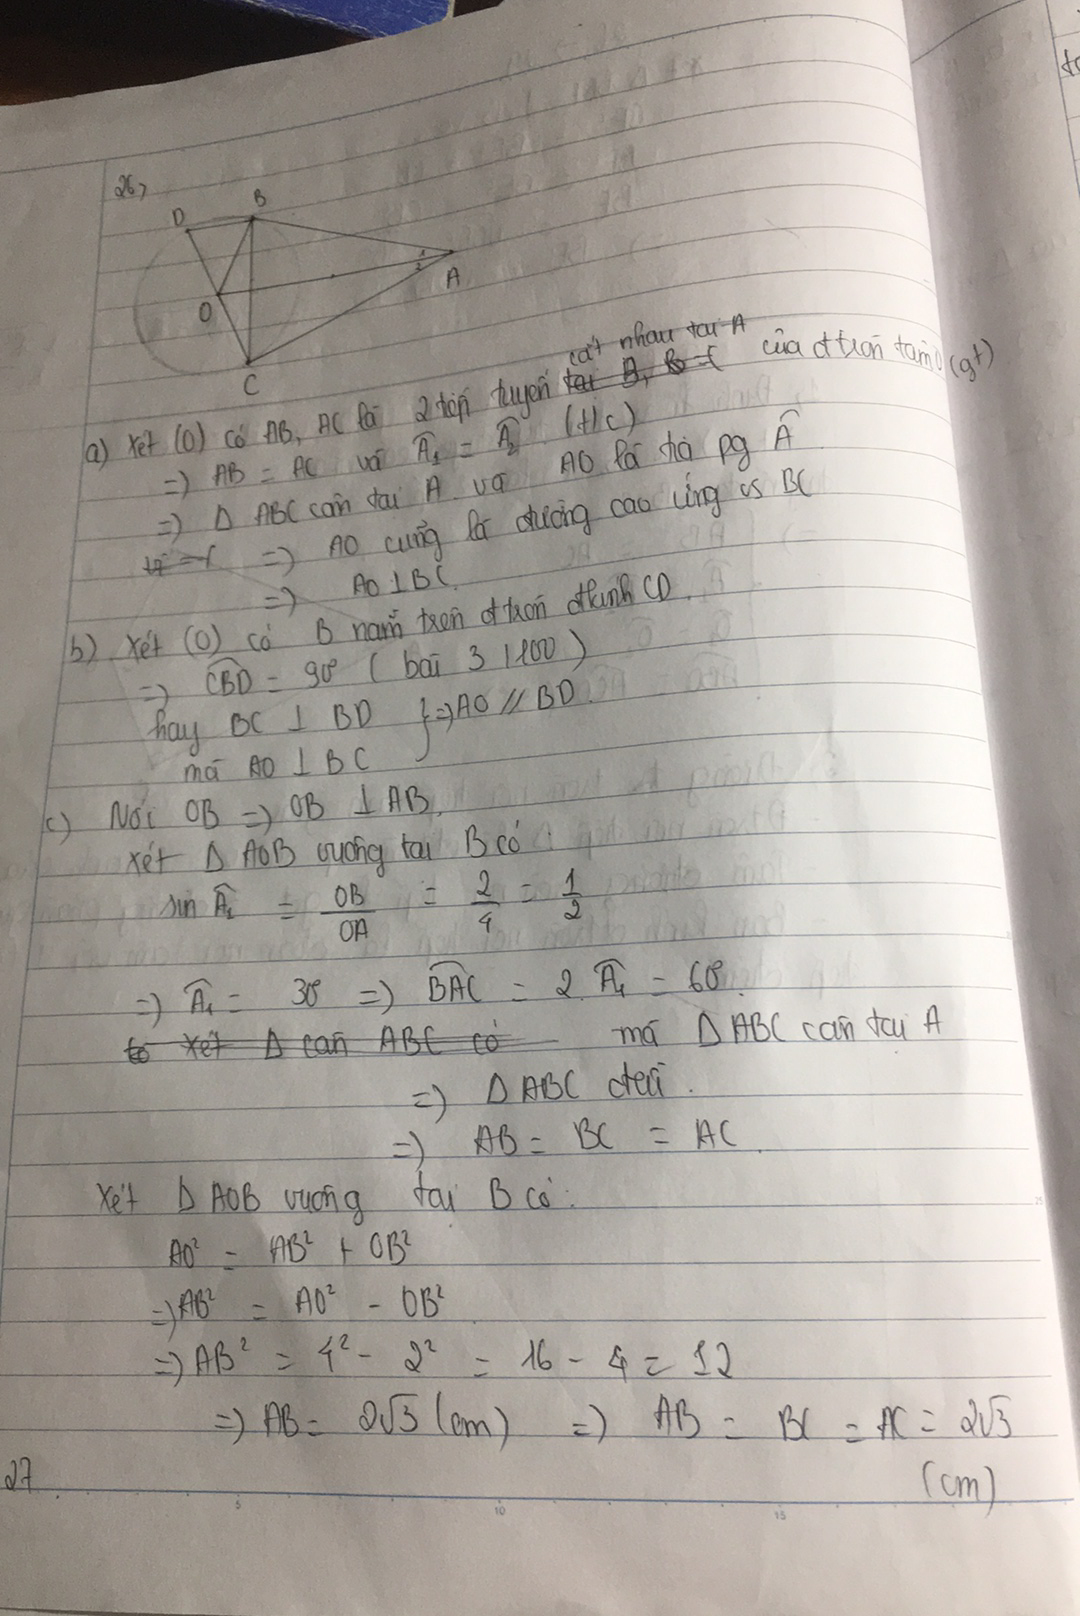 26)
D B
A
O
C
a) Xét (O) có AB, AC là 2 tiếp tuyến cắt nhau tại A của đtròn tâm O (gt)
=> AB = AC và Â₁ = Â₂ (t/c)
=> Δ ABC cân tại A và AO là tia pg Â
=> AO cũng là đường cao ứng vs BC
=> AO ⊥ BC
b) Xét (O) có B nằm trên đtròn đkính CD.
=> CBD = 90° (bài 3 1100)
hay BC ⊥ BD } => AO // BD.
mà AO ⊥ BC
c) Nối OB => OB ⊥ AB.
Xét Δ AOB vuông tại B có:
sin Â₁ = OB/OA = 2/4 = 1/2
=> Â₁ = 30° => BAC = 2. Â₁ = 60°.
Xét Δ cân ABC có mà Δ ABC cân tại A
=> Δ ABC đều.
=> AB = BC = AC.
Xét Δ AOB vuông tại B có:
AO² = AB² + OB²
=> AB² = AO² - OB²
=> AB² = 4² - 2² = 16 - 4 = 12
=> AB = 2√3 (cm) => AB = BC = AC = 2√3
(cm)
27
5 10 15